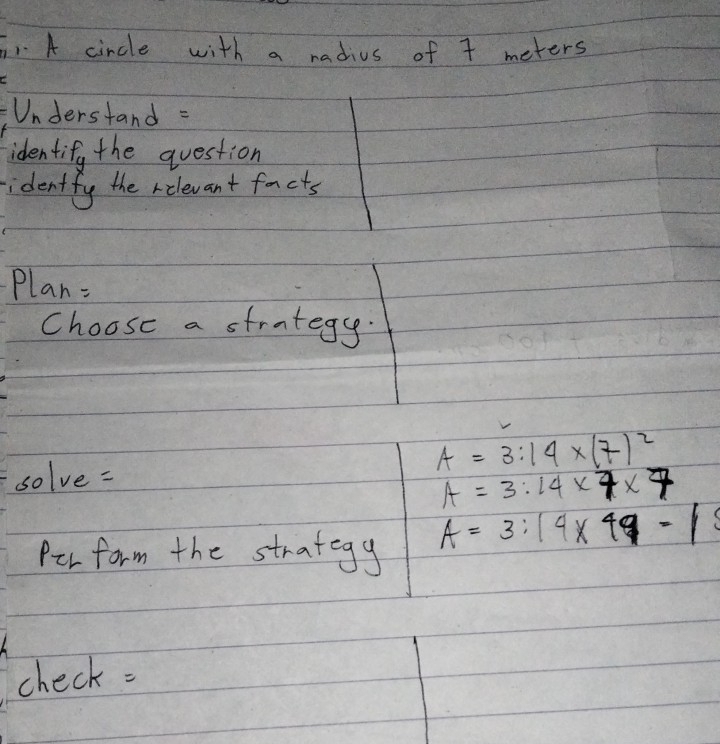 1. A circle with a radius of 7 meters
Understand =
identify the question
identfy the relevant facts
Plan =
Choose a strategy.
solve =
Perform the strategy
A = 3:14 x (7)²
A = 3:14 x 7 x 7
A = 3:14 x 49 = 1
check =